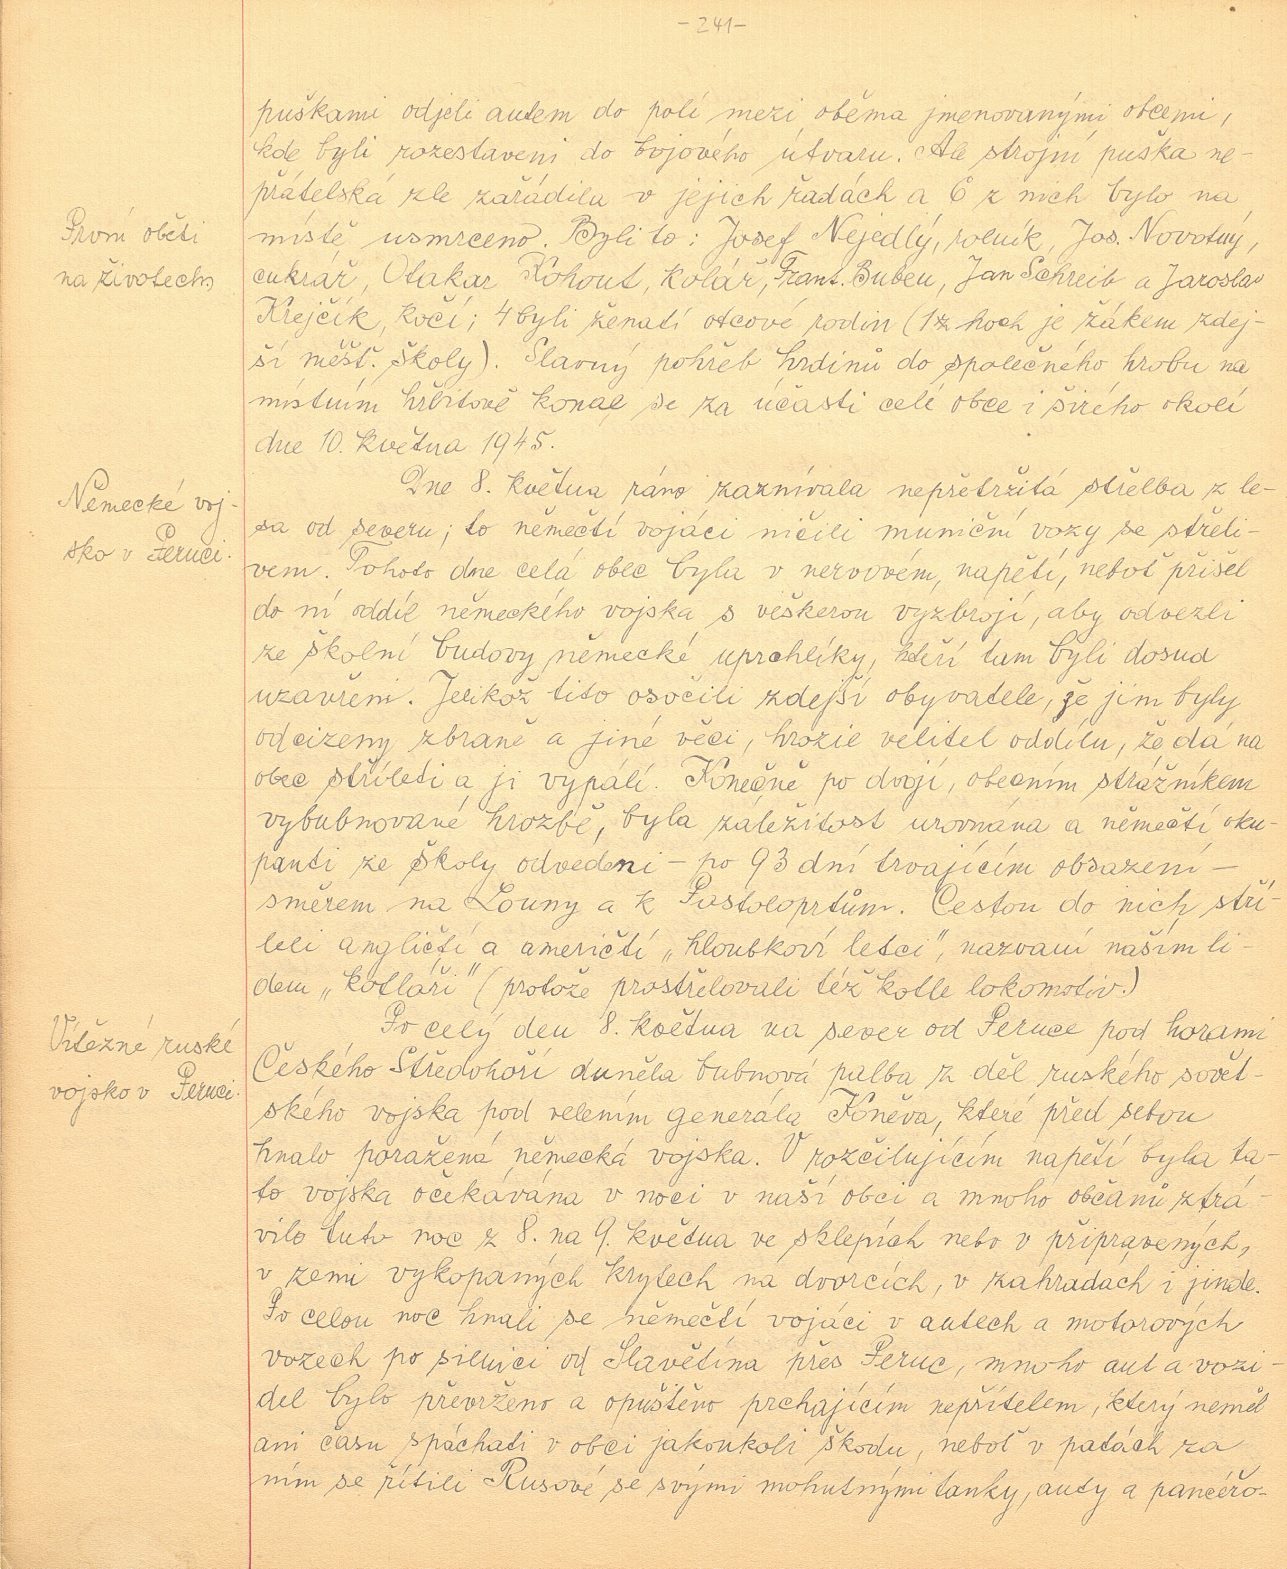 -241-
puškami odjeli autem do polí mezi oběma jmenovanými obcemi,
kde byli rozestaveni do bojového útvaru. Ale strojní puška ne-
přátelská zle zařádila v jejich řadách a 6 z nich bylo na
První oběti
místě usmrceno. Byli to: Josef Nejedlý, rolník, Jos. Novotný,
na životech
cukrář, Otakar Kohout, kolář, Frant. Buben, Jan Schreib a Jaroslav
Krejčík, kočí; 4 byli ženatí otcové rodin (1 hoch je žákem zdej-
ší měšť. školy). Slavný pohřeb hrdinů do společného hrobu na
místním hřbitově konal se za účasti celé obce i širého okolí
dne 10. května 1945.
Dne 8. května ráno zaznívala nepřetržitá střelba z le-
Německé voj-
sa od severu; to němečtí vojáci ničili muniční vozy se střeli-
sko v Peruci.
vem. Tohoto dne celá obec byla v nervovém, napětí, neboť přišel
do ní oddíl německého vojska s veškerou vyzbrojí, aby odvezli
ze školní budovy německé uprchlíky, kteří tam byli dosud
uzavřeni. Jelikož tito osočili zdejší obyvatele, že jim byly
odcizeny zbraně a jiné věci, hrozil velitel oddílu, že dá na
obec stříleti a ji vypálí. Konečně po dvojí, obecním strážníkem
vybubnované hrozbě, byla záležitost urovnána a němečtí oku-
panti ze školy odvedeni - po 93 dní trvajícím obsazení -
směrem na Louny a k Postoloprtům. Cestou do nich stří-
leli angličtí a američtí „hloubkoví letci", nazvaní naším li-
dem „kotláři" (protože prostřelovali též kotle lokomotiv.)
Vítězné ruské
Po celý den 8. května na sever od Peruce pod horami
vojsko v Peruci.
Českého Středohoří duněla bubnová palba z děl ruského sovět-
ského vojska pod velením generála Koněva, které před sebou
hnalo poražená německá vojska. V rozčilujícím napětí byla ta-
to vojska očekávána v noci v naší obci a mnoho občanů ztrá-
vilo tuto noc z 8. na 9. května ve sklepích nebo v připravených,
v zemi vykopaných krytech na dvorcích, v zahradách i jinde.
Po celou noc hnali se němečtí vojáci v autech a motorových
vozech po silnici od Slavětína přes Peruc, mnoho aut a vozi-
del bylo převrženo a opuštěno prchajícím nepřítelem, který neměl
ani času spáchati v obci jakoukoli škodu, neboť v patách za
ním se řítili Rusové se svými mohutnými tanky, auty a pancéřo-